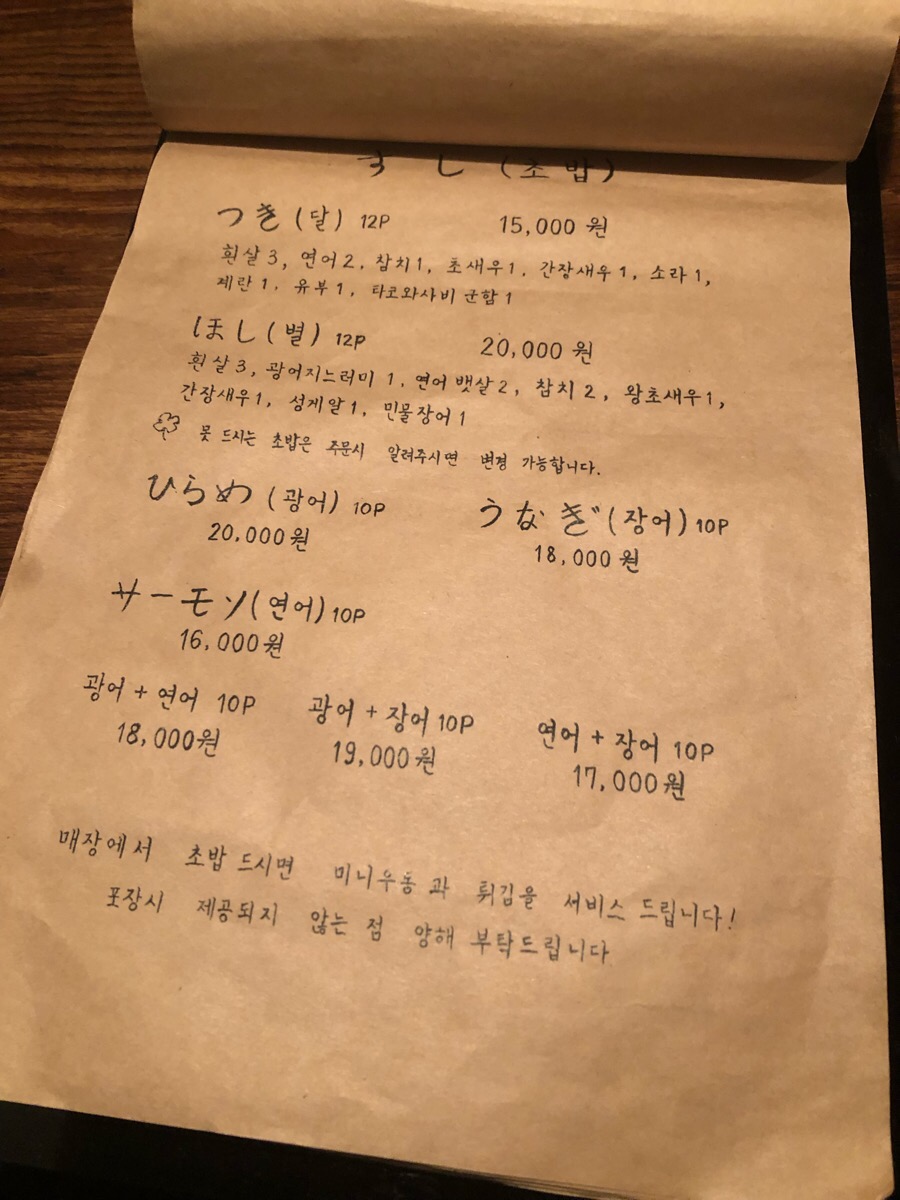 すし (초밥)
つき (달) 12P 15,000 원
흰살 3, 연어 2, 참치 1, 초새우 1, 간장새우 1, 소라 1,
계란 1, 유부 1, 타코와사비 군함 1
ほし (별) 12P 20,000 원
흰살 3, 광어지느러미 1, 연어 뱃살 2, 참치 2, 왕초새우 1,
간장새우 1, 성게알 1, 민물장어 1
못 드시는 초밥은 주문시 알려주시면 변경 가능합니다.
ひらめ (광어) 10P うなぎ (장어) 10P
20,000원 18,000 원
サーモン (연어) 10P
16,000원
광어 + 연어 10P 광어 + 장어 10P 연어 + 장어 10P
18,000원 19,000원 17,000원
매장에서 초밥 드시면 미니우동과 튀김을 서비스 드립니다!
포장시 제공되지 않는 점 양해 부탁드립니다